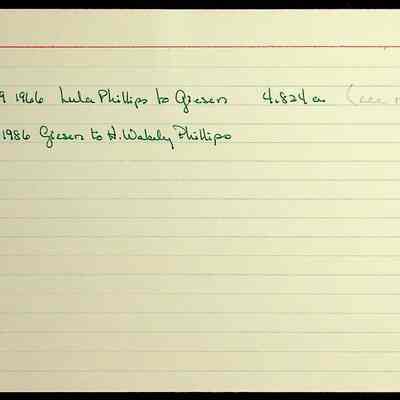 9 1966 Lula Phillips to Giesen 4.824 a (see
1986 Giesen to H. Wakely Phillips